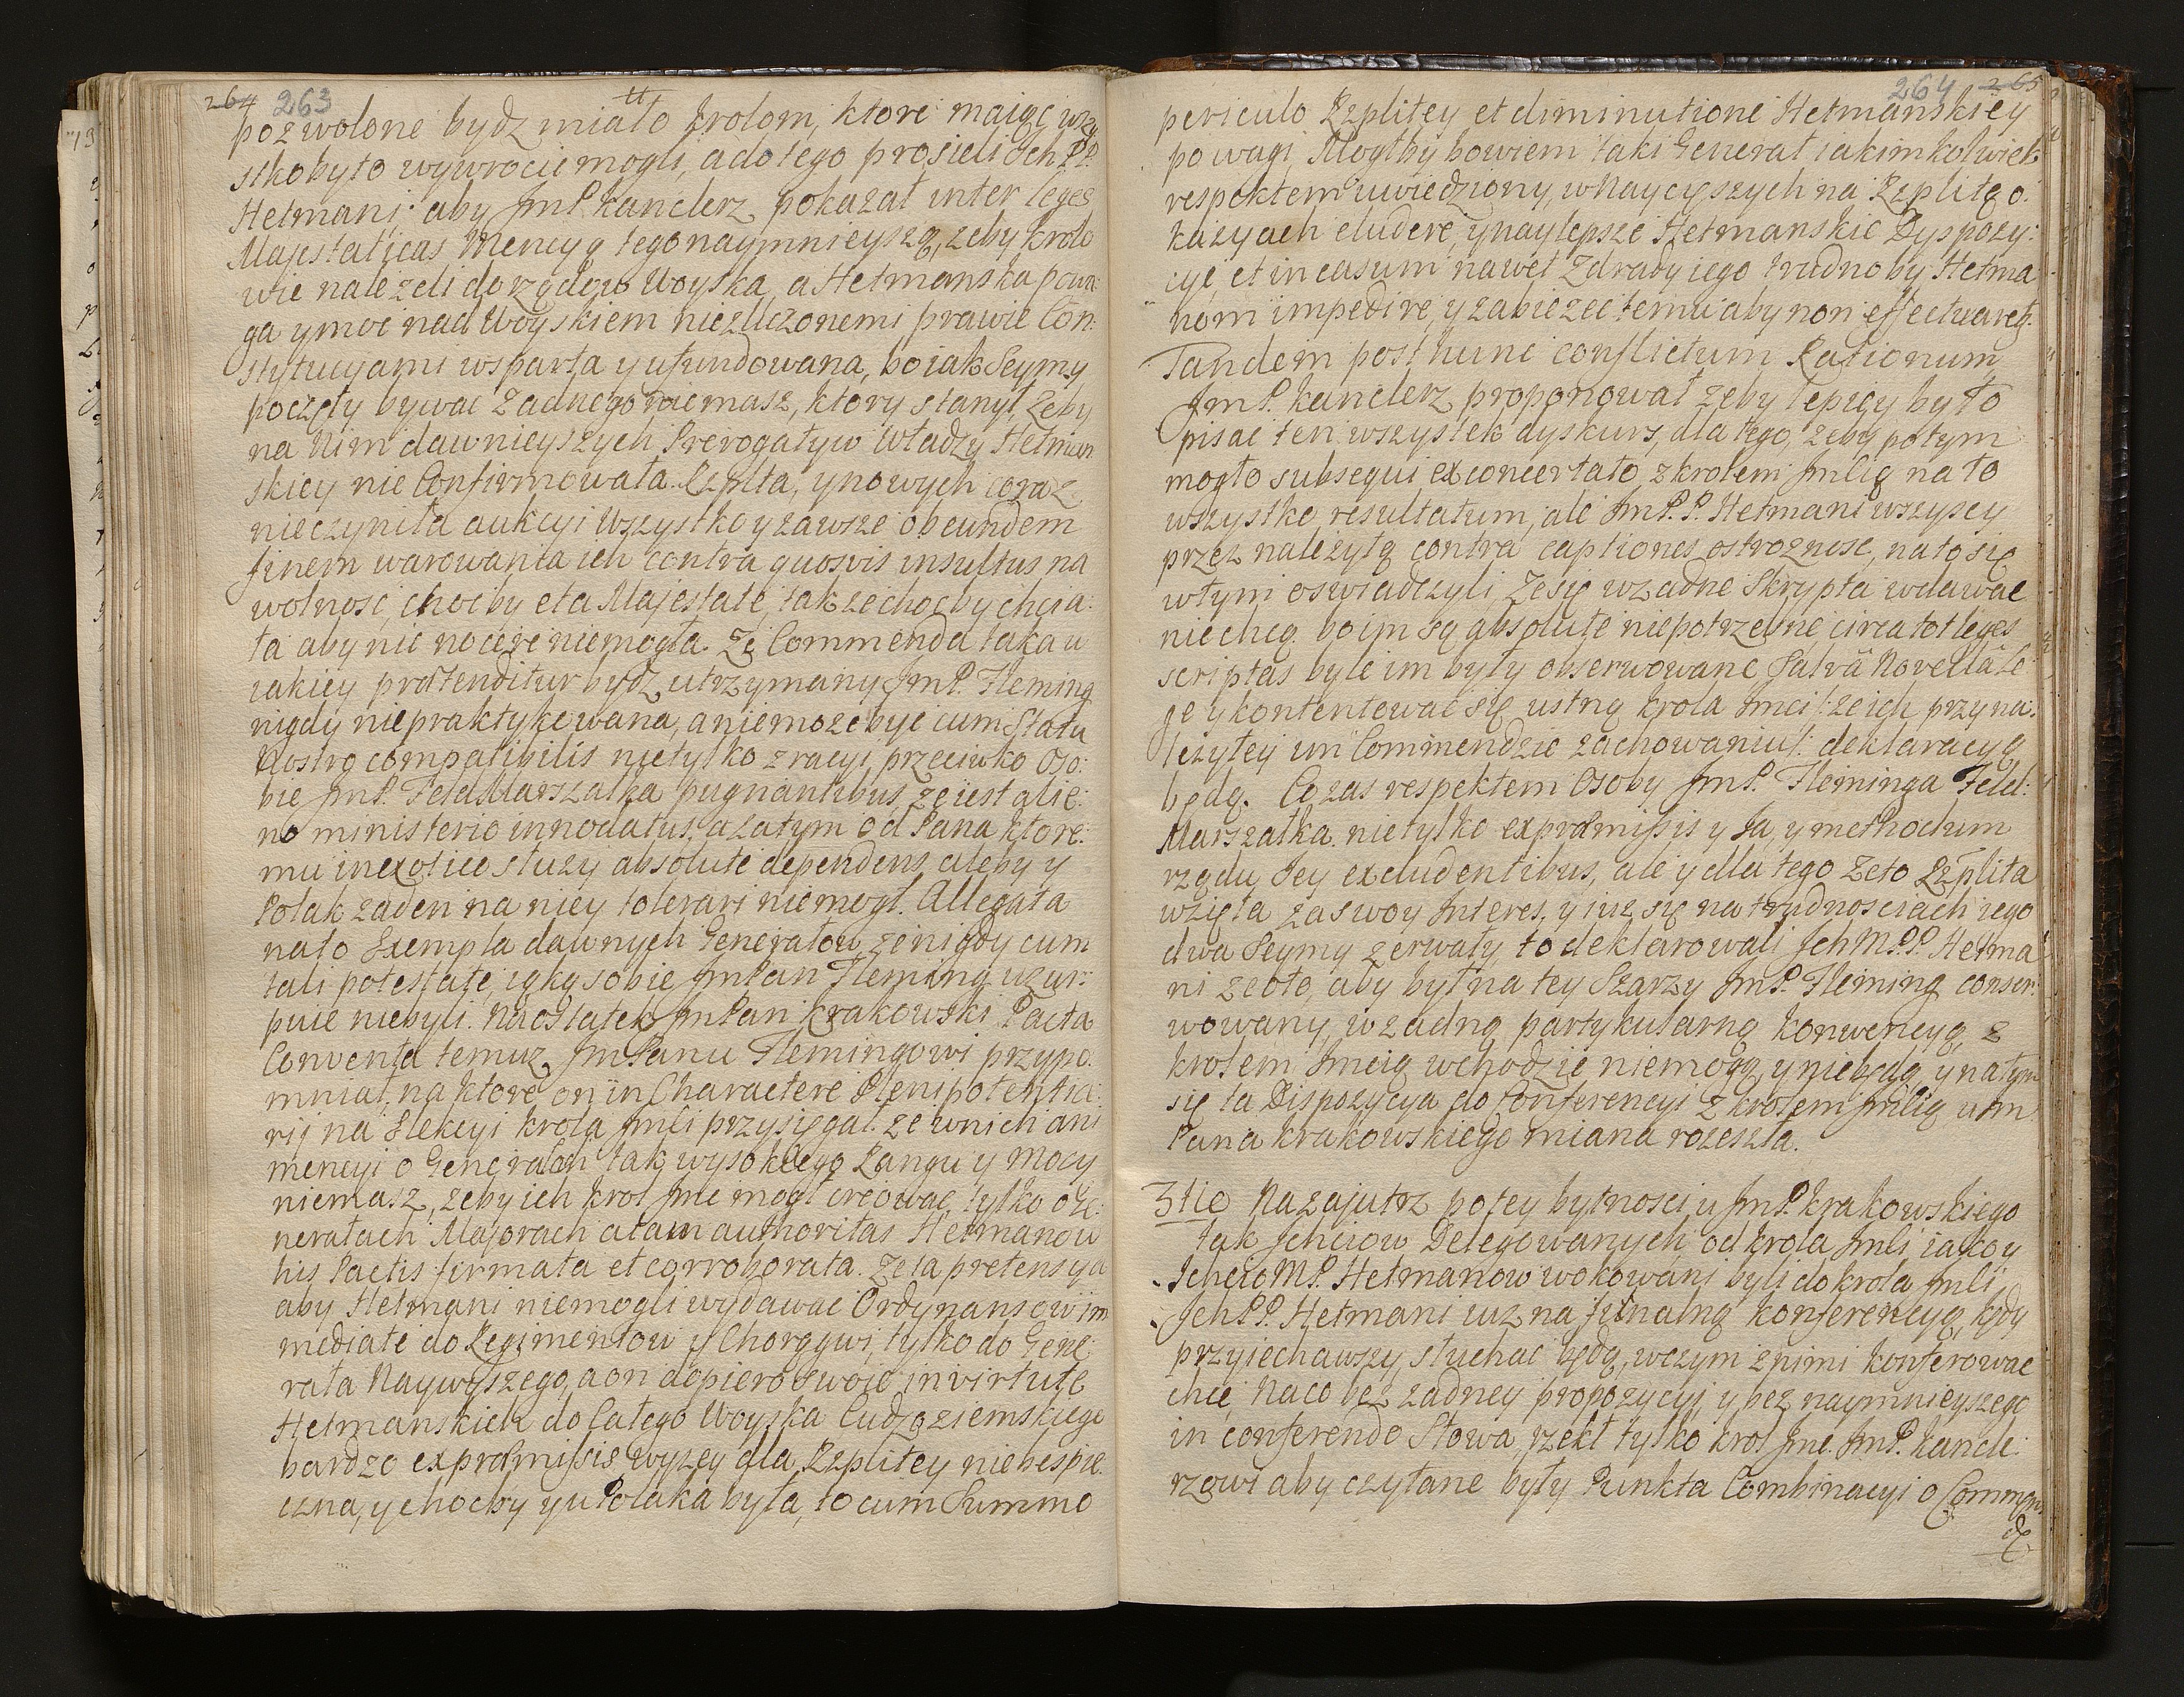 264 263
pozwolone bydz miało Krolom, ktore maiąc wszy
stko było wywrocić mogli, a do tego prosieli Ich PP.
Hetmani aby JmP. Kanclerz pokazał inter leges
Majestaticas Mencyą tego naymnieyszą, żeby Krolo
wie należeli do rządow Woyska, a Hetmanska powa:
ga y moc nad Woyskiem niezliczonemi prawie Con:
stytucyjami wsparta y ufundowana, bo iak Seymy
poczęły bywać żadnego niemasz, ktory stanył, żeby
na Nim dawnieyszych Prerogatyw Władzy Hetman
skiey nie Confirmowała Rzplta, y nowych coraz
nieczyniła aukcyi Wszystko y zawsze ob eundem
finem warowania ich contra quosvis insultus na
wolnosc, choćby et a Majestate, tak że choćby chcia:
ła aby nic nocere niemogła. Ze Commenda taka w
iakiey prætenditur bydz utrzymany JmP. Fleming
nigdy niepraktykowana, a niemoże być cum Statu
Nostro compatibilis nietylko z racyi przeciwko Oso:
bie JmP. FeldMarszałka pugnantibus, że iest alie:
no ministerio innodatus, a zatym od Pana ktore:
mu in exotico służy absolute dependens, ale by y
Polak żaden na niey tolerari niemogł. Allegata
na to Exempla dawnych Generałow, że nigdy cum
tali potestate, iaką sobie JmPan Fleming uzur:
puie niebyli. Naostatek JmPan Krakowski Pacta
Conventa temuz JmPanu Flemingowi przypo:
mniał, na ktore on in Charactere Plenipotentia:
rij na Elekcyi Krola Jmći przysięgał. że w nich ani
mencyi o Generałach tak wysokiego Rangu y Mocy
niemasz, żeby ich Krol Jmć mogł creować, tylko o Ge:
nerałach Majorach a tam authoritas Hetmanow
his Pactis firmata et corroborata. Ze ta pretensya
aby Hetmani niemogli wydawać Ordynansow im
mediate do Regimentow y Chorągwi, tylko do Gene:
rała Naywyższego, a on dopiero swoie in virtute
Hetmanskich do Całego Woyska Cudzoziemskiego
bardzo ex præmissis wyzey dla Rzplitey niebespie:
czna, y choćby y u Polaka była, to cum Summo
264 265
periculo Rzplitey et diminutione Hetmanskiey
powagi, Mogłby bowiem taki Generał iakimkolwiek
respektem uwiedziony, w Nayciższych na Rzplitę o:
kazyach eludere, y naylepsze Hetmanskie Dyspozy:
cye, et in casum nawet Zdrady iego trudno by Hetma
nom impedire, y zabieżeć temu aby non effectuaret.
Tandem post hunc conflictum Rationum,
JmP. Kanclerz proponował żeby lepiey było
pisać ten wszystek dyskurs, dla tego, żeby potym
mogło subsequi ex concertato z krolem Jmścią na to
wszystko resultatum, ale JmP.P. Hetmani wszyscy
przez nalezytą contra captiones ostroznosc, na to się
w tym oswiadczyli, Ze się w zadne Skrypta wdawać
niechcą. bo im są absolute niepotrzebne, circa tot leges
scriptas byle im były obserwowane Salvâ Novellâ Le:
ge y kontentować się ustną Krola Jmći /: ze ich przy na:
leżytey im Commendzie zachowanie :/ deklaracyą
będą. Co zas respektem Osoby JmP. Fleminga Feld:
Marszałka. nietylko ex præmissis y Ja, y methodum
rządu Jey excludentibus, ale y dla tego Ze to Rzplita
wzięła za swoy Interes, y iuz się na trudnosciach iego
dwa Seymy zerwały, to deklarowali Ich M.P.P. Hetma
ni ze o to, aby był na tey Szarzy JmP. Fleming conser:
wowany, w zadną partykularną konwencyą z
krolem Jmcią wchodzić niemogą, y niebędą, y na tym
się ta Dispozycya do Conferencyi z krolem Jmścią u Jm
Pana Krakowskiego miana rozeszła.
3tio Nazajutrz po tey bytnosci u JmP. Krakowskiego
tak Ichciow Delegowanych od krola Jmći iako y
Ichcio MP. Hetmanow wokowani byli do krola Jmći
Ich P.P. Hetmani iuz na finalną konferencyą, kędy
przyiechawszy, słuchać będą, w czym z nimi konferować
chce, Na co bez zadney propozycyi, y bez naymnieyszego
in conferendo Słowa, rzekł tylko krol Jmć. JmP. Kancle:
rzowi aby czytane były Punkta Combinacyi o Commen
dę